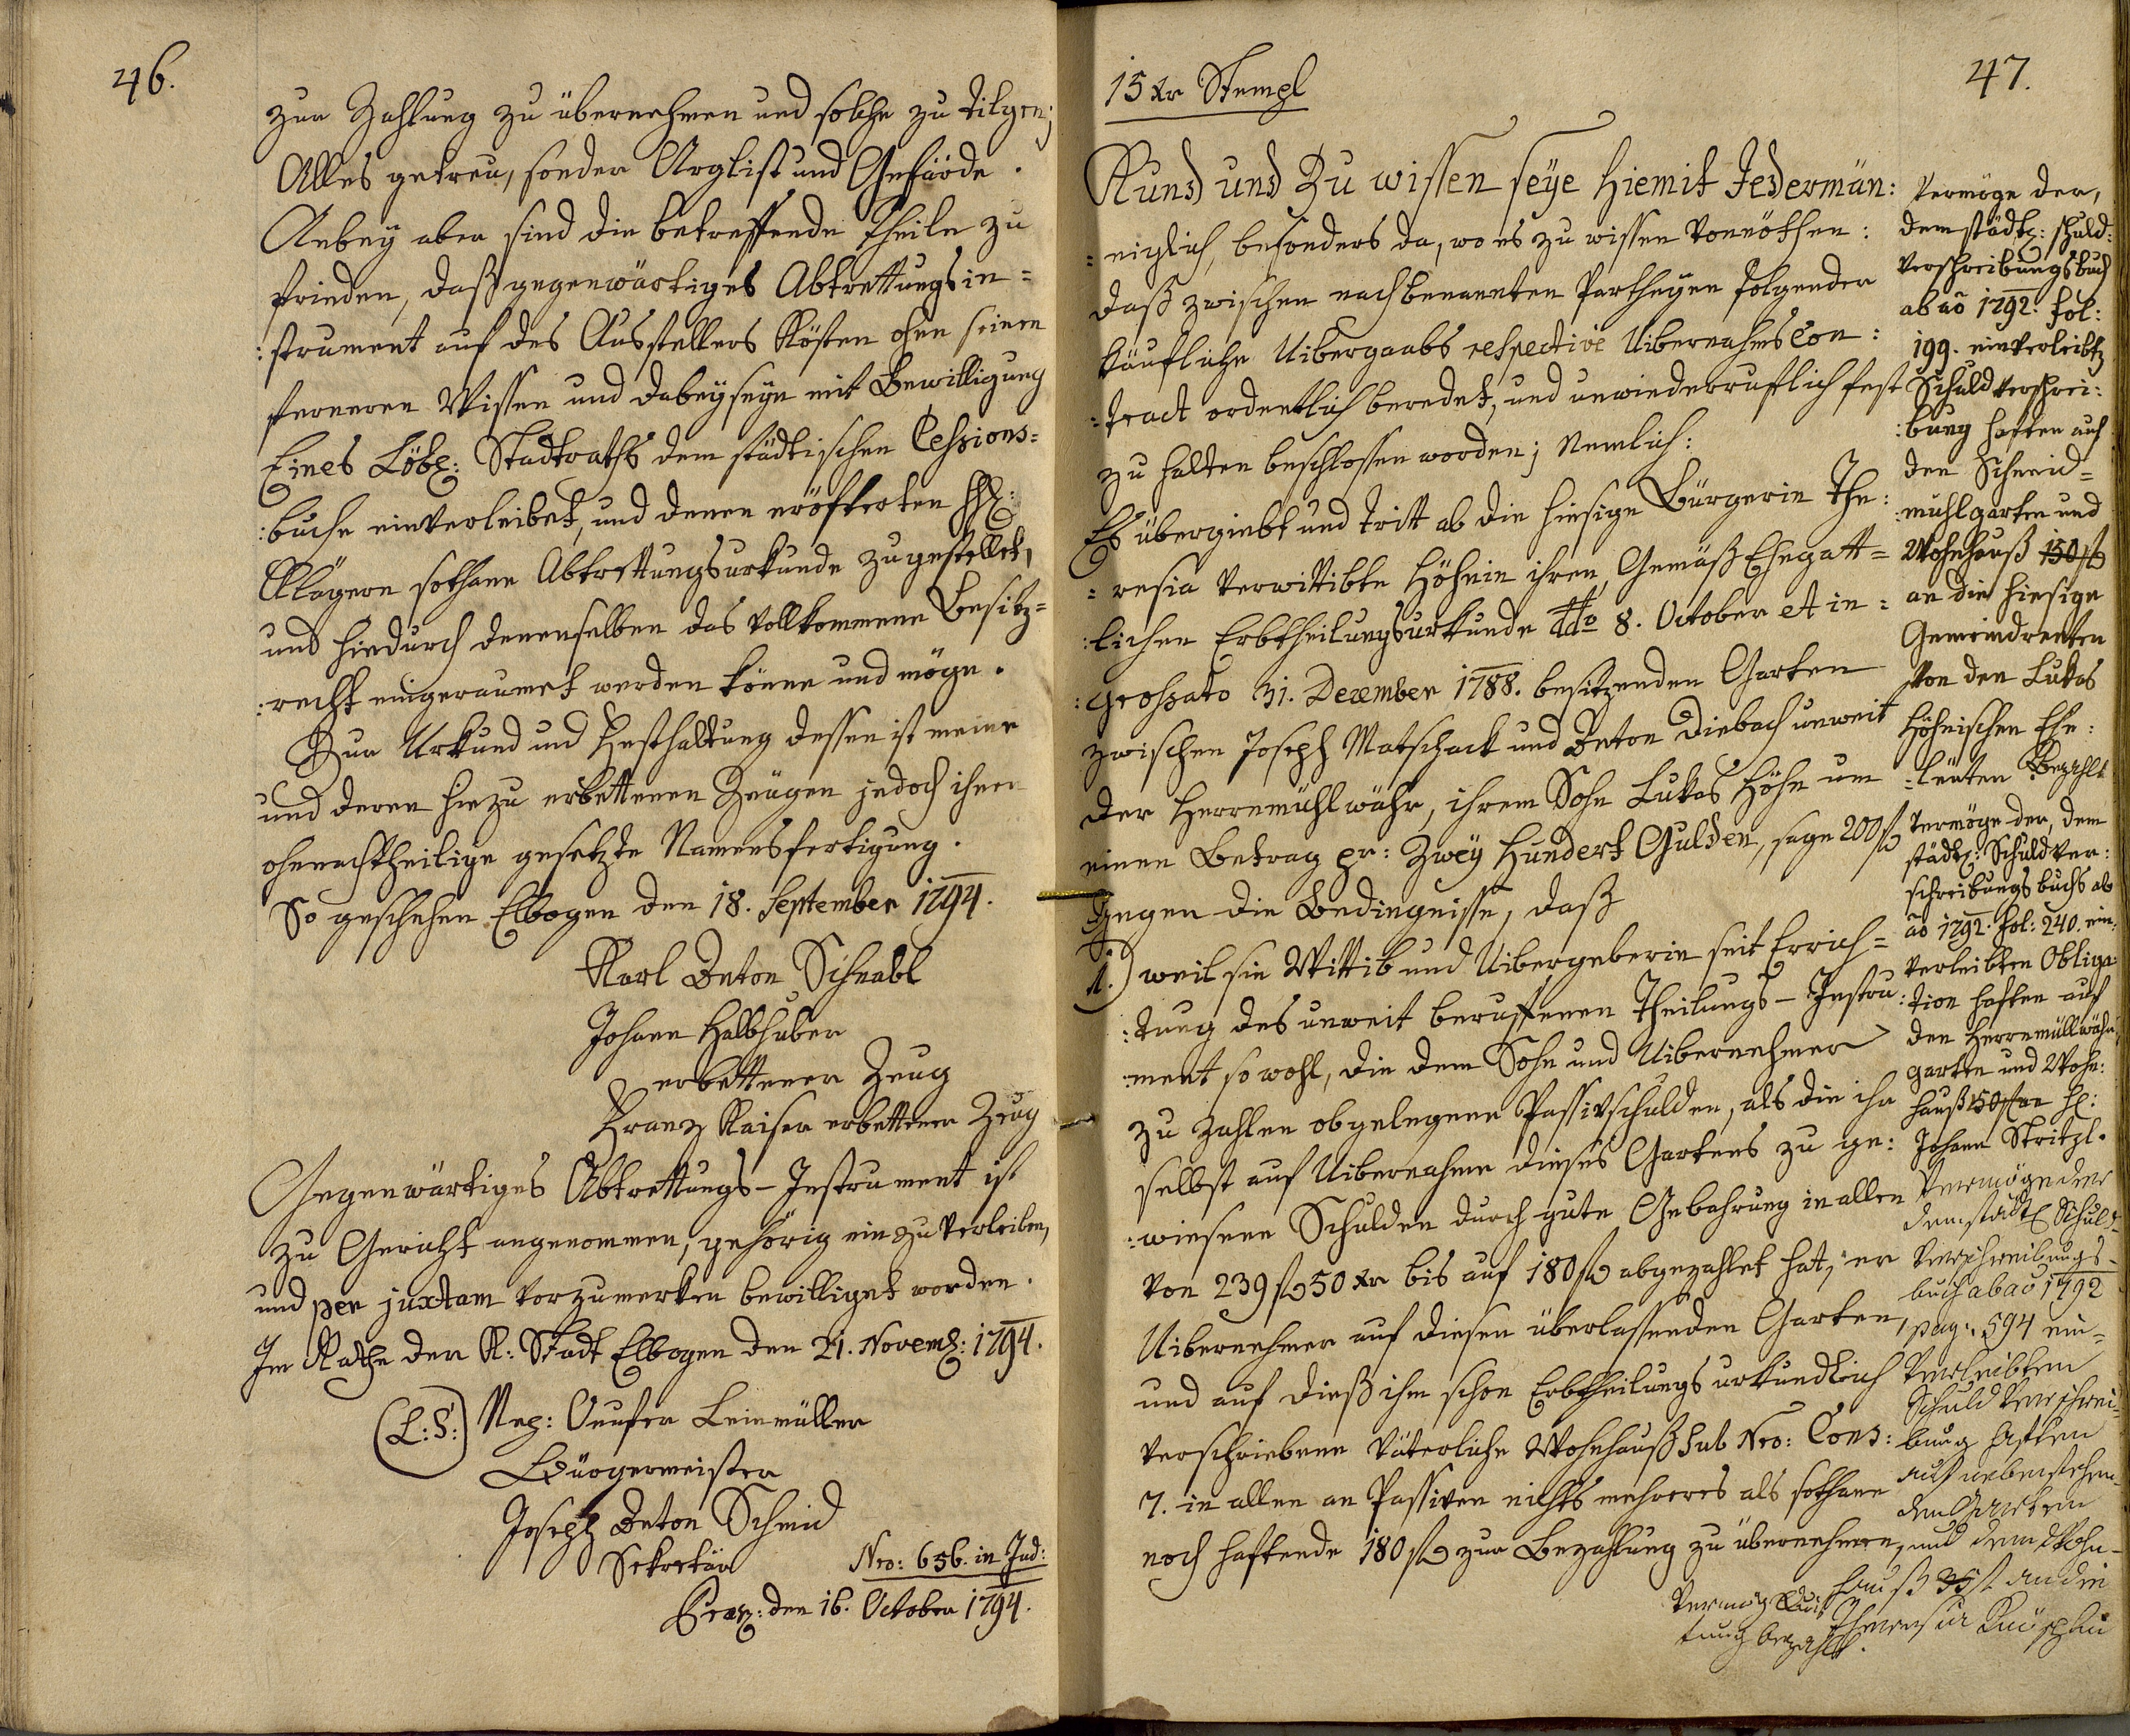 46.
zur Zahlung zu übernehmen und solche zu tilgen;
Alles getreu, sonder Arglist und Gefärde.
Anbey aber sind die betreffende Theile zu
frieden, daß gegenwärtiges Abtrettungsin=
:strument auf des Ausstellers Kösten ohne seinen
ferneren Wissen und Dabeyseyn mit Bewilligung
Eines Löbl: Stadtraths dem städtischen Cessions=
:buche einverleibet, und denen eröfterten HH:
Klägern sothane Abtrettungsurkunde zugestellet,
und hiedurch denenselben das vollkommene Besitz=
:recht eingeraumet werden könne und möge.
Zur Urkund und Festhaltung dessen ist meine
und deren hiezu erbettenen Zeugen jedoch ihnen
ohnnachtheilige gesetzte Namensfertigung.
So geschehen Elbogen den 18. September 1794.
Karl Anton Schnabl
Johann Halbhuber
erbettener Zeug
Franz Kaiser erbettener Zeug
Gegenwärtiges Abtrettungs-Instrument ist
zu Gericht angenommen, gehörig einzuverleiben,
und per juxtam vorzumerken bewilliget worden.
Im Rathe der K: Stadt Elbogen den 21. Novemb: 1794.
(L:S:) Nep: Onufer Leinmüller
Bürgermeister
Joseph Anton Schmid
Sekretär
Nro: 656. in Jud:
Praes: den 16. October 1794.
47.
15 xr Stempl
Kund und Zu wissen seye hiemit Jedermän:
=niglich, besonders da, wo es zu wissen vonnöthen:
daß zwischen nachbenannten Partheyen folgender
käufliche Uibergaabs respective Uibernahms Con:
:tract ordentlich beredet, und unwiederruflich fest
zu halten beschlossen worden; Nemlich:
Es übergiebt und tritt ab die hiesige Bürgerin The:
=resia verwittibte Höhnin ihren, Gemäß Ehegatt=
:lichen Erbtheilungsurkunde ddto 8. October et in=
:grossato 31. December 1788. besitzenden Garten
zwischen Joseph Matschack und Anton Diebach unweit
der Herrnmühlwöhr, ihrem Sohn Lukas Höhn um
einen Betrag pr: Zwey Hundert Gulden, sage 200 fl
Gegen die Bedingnisse, daß
1.) weil sie Wittib und Uibergeberin seit Errich=
:tung des unweit beruffenen Theilungs-Instru:
:ment sowohl, die dem Sohn und Uibernehmer
zu zahlen obgelegene Passivschulden, als die ihr
selbst auf Uibernahme dieses Gartens zu ge:
:wiesene Schulden durch gute Gebahrung in allen
von 239 fl 50 xr bis auf 180 fl abgezahlet hat, er
Uibernehmer auf diesen überlassenden Garten,
und auf dieß ihm schon Erbtheilungs urkundlich
verschriebene väterliche Wohnhauß sub Nro: Cons:
7. in allen an Passiven nichts mehreres als sothane
noch haftende 180 fl zur Bezahlung zu übernehmen,
Vermöge der,
dem städt: Schuld:
verschreibungsbuch
ab ao 1792. fol:
199. einverleibt
Schuldverschrei:
:bung haften auf
den Schneid=
:mühlgarten und
Wohnhauß 150 fl
an die hiesige
Gemeindrenten
von den Lukas
Höhnischen Ehe:
:leuten Bezahlt
Vermöge der, dem
städt: Schuldver:
schreibungs buchs ab
ao 1792. fol: 240. ein:
verleibten Obliga:
tion haften auf
den Herrnmüllwöhr
garten und Wohn:
hauß 150 fl an H:
Johann Stritzl.
Vermöge der
dem städt Schuld=
Verschreibungs-
buch ab ao 1792
pag: 594 ein=
Verleibten
Schuld Verschrei=
bung haften
auf nebenstehen=
den Garten
und dem Wohn-
hauß 35 fl an die
Theresia
Vermög Quit
tung bezahlt.